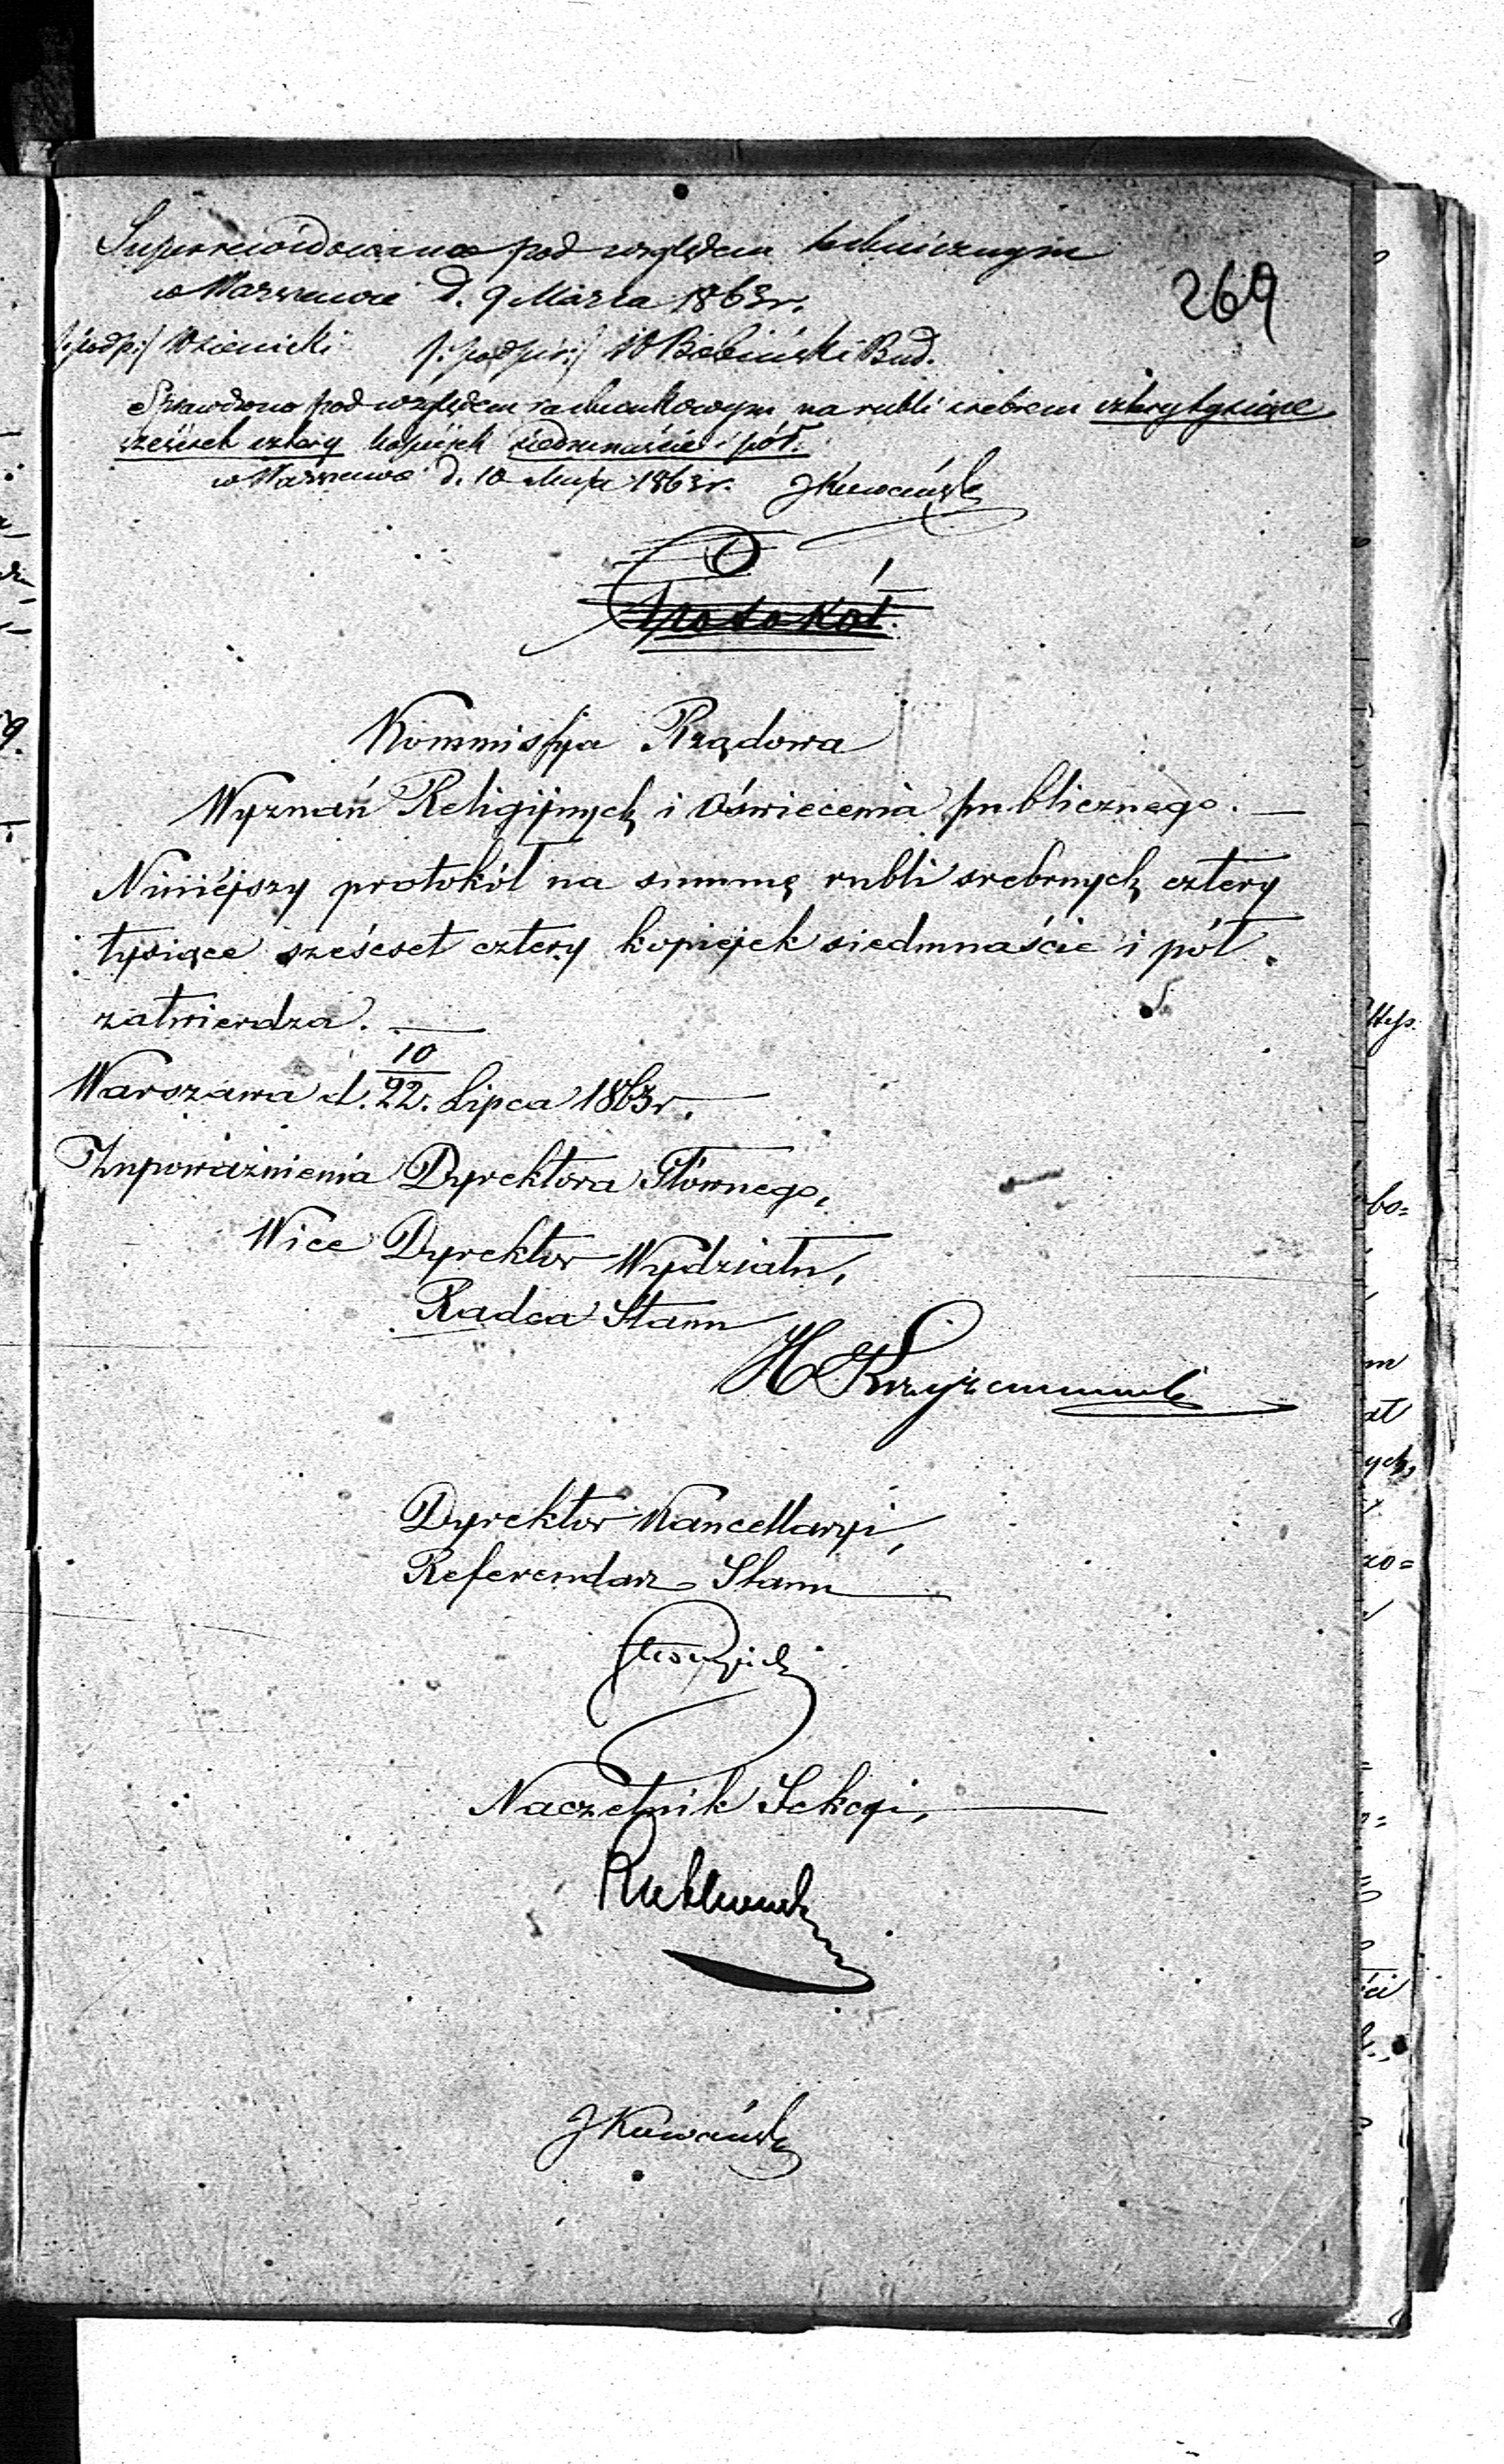 Superrewidowano pod względem technicznym
w Warszawie d. 9 Marca 1863 r.
269
/:podp:/ /:podpis:/ Bud.
Sprawdzono pod względem rachunkowym na rubli srebrem cztery tysiące
sześćset cztery kopiejek siedmnaście i pół.
w Warszawie d. 10 Maja 1863 r.
Protokół.
Kommissyja Rządowa
Wyznań Religijnych i Oświecenia publicznego. —
Niniéjszy protokół na summę rubli srebrnych cztery
tysiące sześćset cztery kopiejek siedmnaście i pół.
zatwierdza. —
Warszawa d. 10/22. Lipca 1863 r. —
Z upoważnienia Dyrektora Głównego,
Wice Dyrektor Wydziału,
Radca Stanu
Dyrektor Kancellaryi,
Referendarz Stanu
Naczelnik Sekcyi,